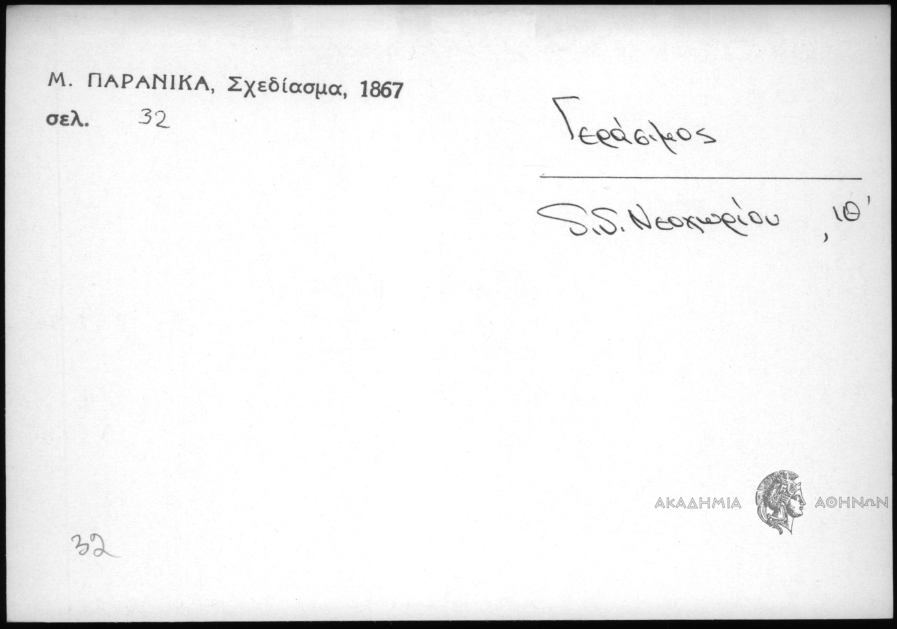 Μ. ΠΑΡΑΝΙΚΑ, Σχεδίασμα, 1867
σελ. 32
Γεράσιμος
δ.δ. Νεοχωρίου , ιθ'
32
ΑΚΑΔΗΜΙΑ ΑΘΗΝΩΝ